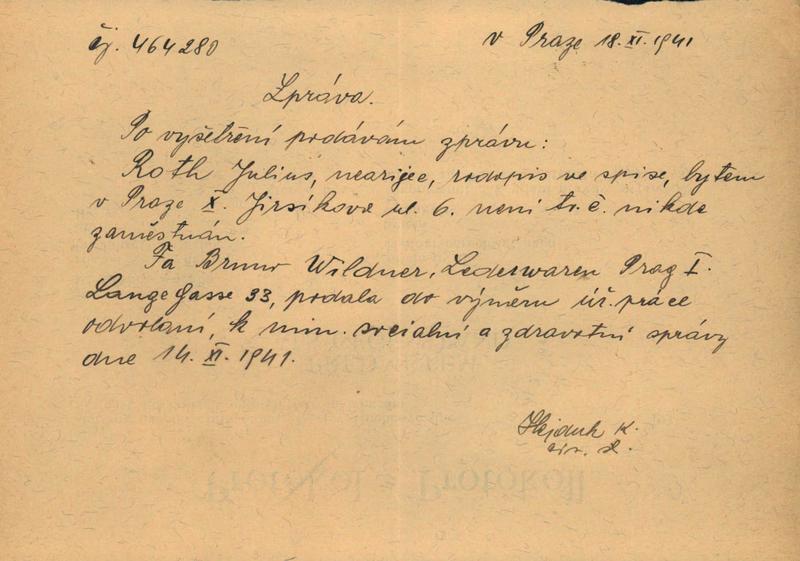 čj. 464280
v Praze 18. XI. 1941
Zpráva.
Po vyšetření podávám zprávu:
Roth Julius, nearijec, rodopis ve spise, bytem
v Praze X. Jirsíkova ul. 6. není t. č. nikde
zaměstnán.
Fa Bruno Wildner, Lederwaren Prag I.
Lange Gasse 33, podala do výměru úř. práce
odvolání, k min. sociální a zdravotní správy
dne 14. XI. 1941.
Hejduk K.
Protokol – Protokoll